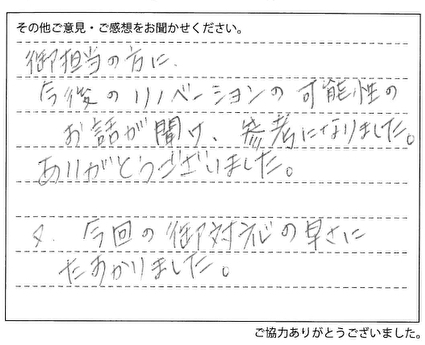 その他ご意見・ご感想をお聞かせください。
御担当の方に、
今後のリノベーションの可能性の
お話が聞け、参考になりました。
ありがとうございました。
又、今回の御対応の早さに
たすかりました。
ご協力ありがとうございました。